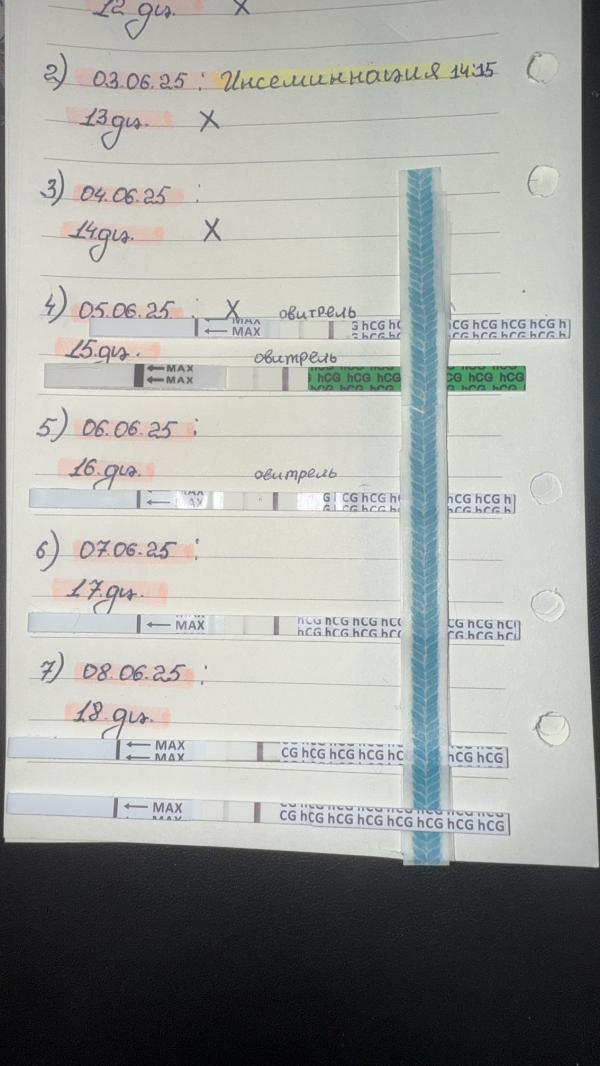 12 дц. X
2) 03.06.25 : Инсеминнация 14:15
13 дц. X
3) 04.06.25 :
14 дц. X
4) 05.06.25 : X овитрель
MAX
← MAX G hCG hC CG hCG hCG hCG h
15 дц. овитрель
← MAX
← MAX hCG hCG hCG CG hCG hCG
5) 06.06.25 :
16 дц. овитрель
← MAX G CG hCG h hCG hCG h
6) 07.06.25 :
17 дц.
← MAX hCG hCG hCG hCG CG hCG hC
7) 08.06.25 :
18 дц.
← MAX
← MAX CG hCG hCG hCG hC hCG hCG
← MAX CG hCG hCG hCG hCG hCG hCG